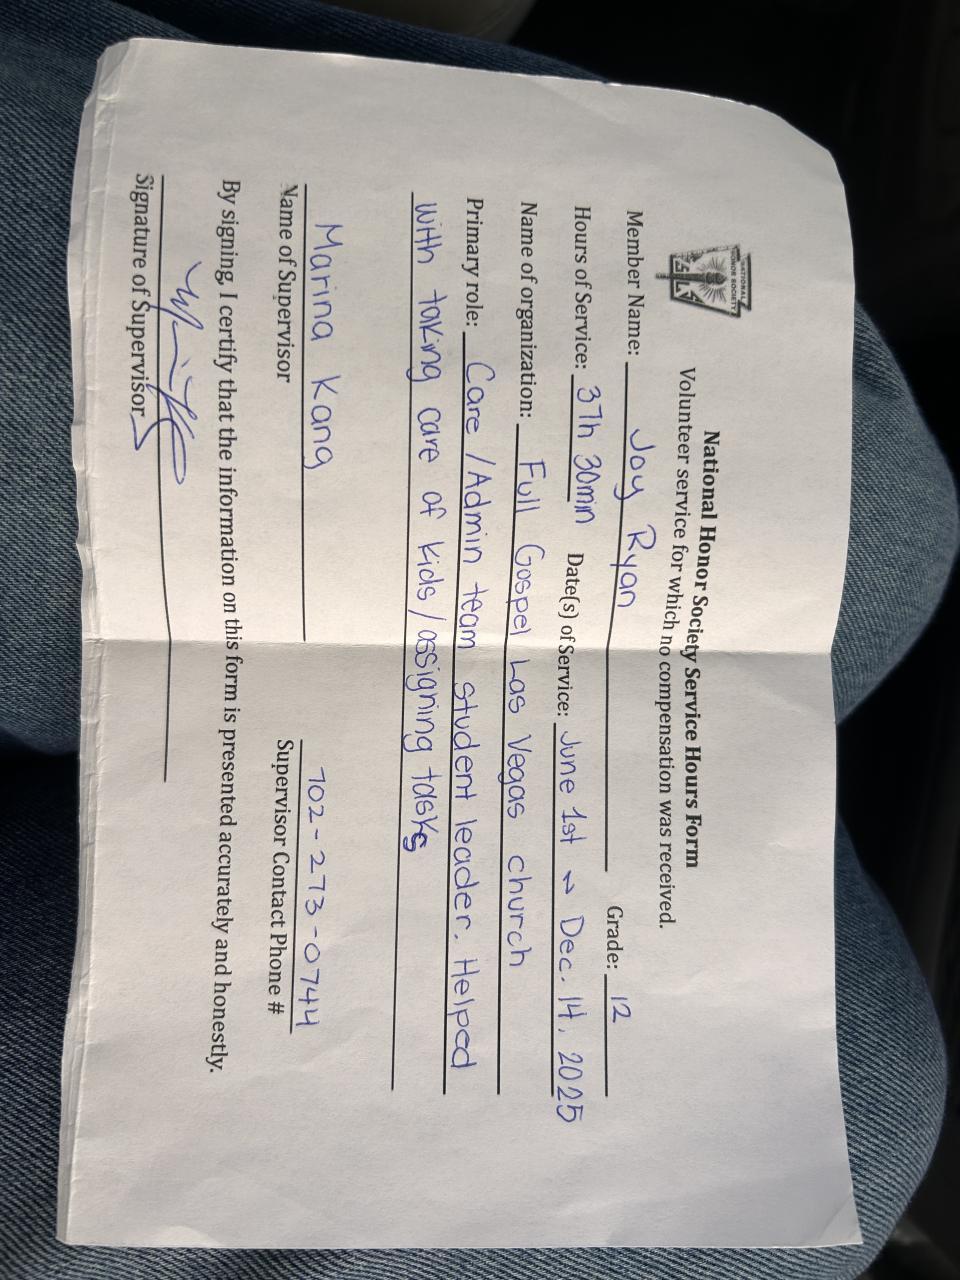 NATIONAL
HONOR SOCIETY
National Honor Society Service Hours Form
Volunteer service for which no compensation was received.
Member Name: Joy Ryan Grade: 12
Hours of Service: 37h 30min Date(s) of Service: June 1st ~ Dec. 14, 2025
Name of organization: Full Gospel Las Vegas church
Primary role: Care / Admin team student leader. Helped
with taking care of kids / assigning tasks
Marina Kang 702-273-0744
Name of Supervisor Supervisor Contact Phone #
By signing, I certify that the information on this form is presented accurately and honestly.
Signature of Supervisor